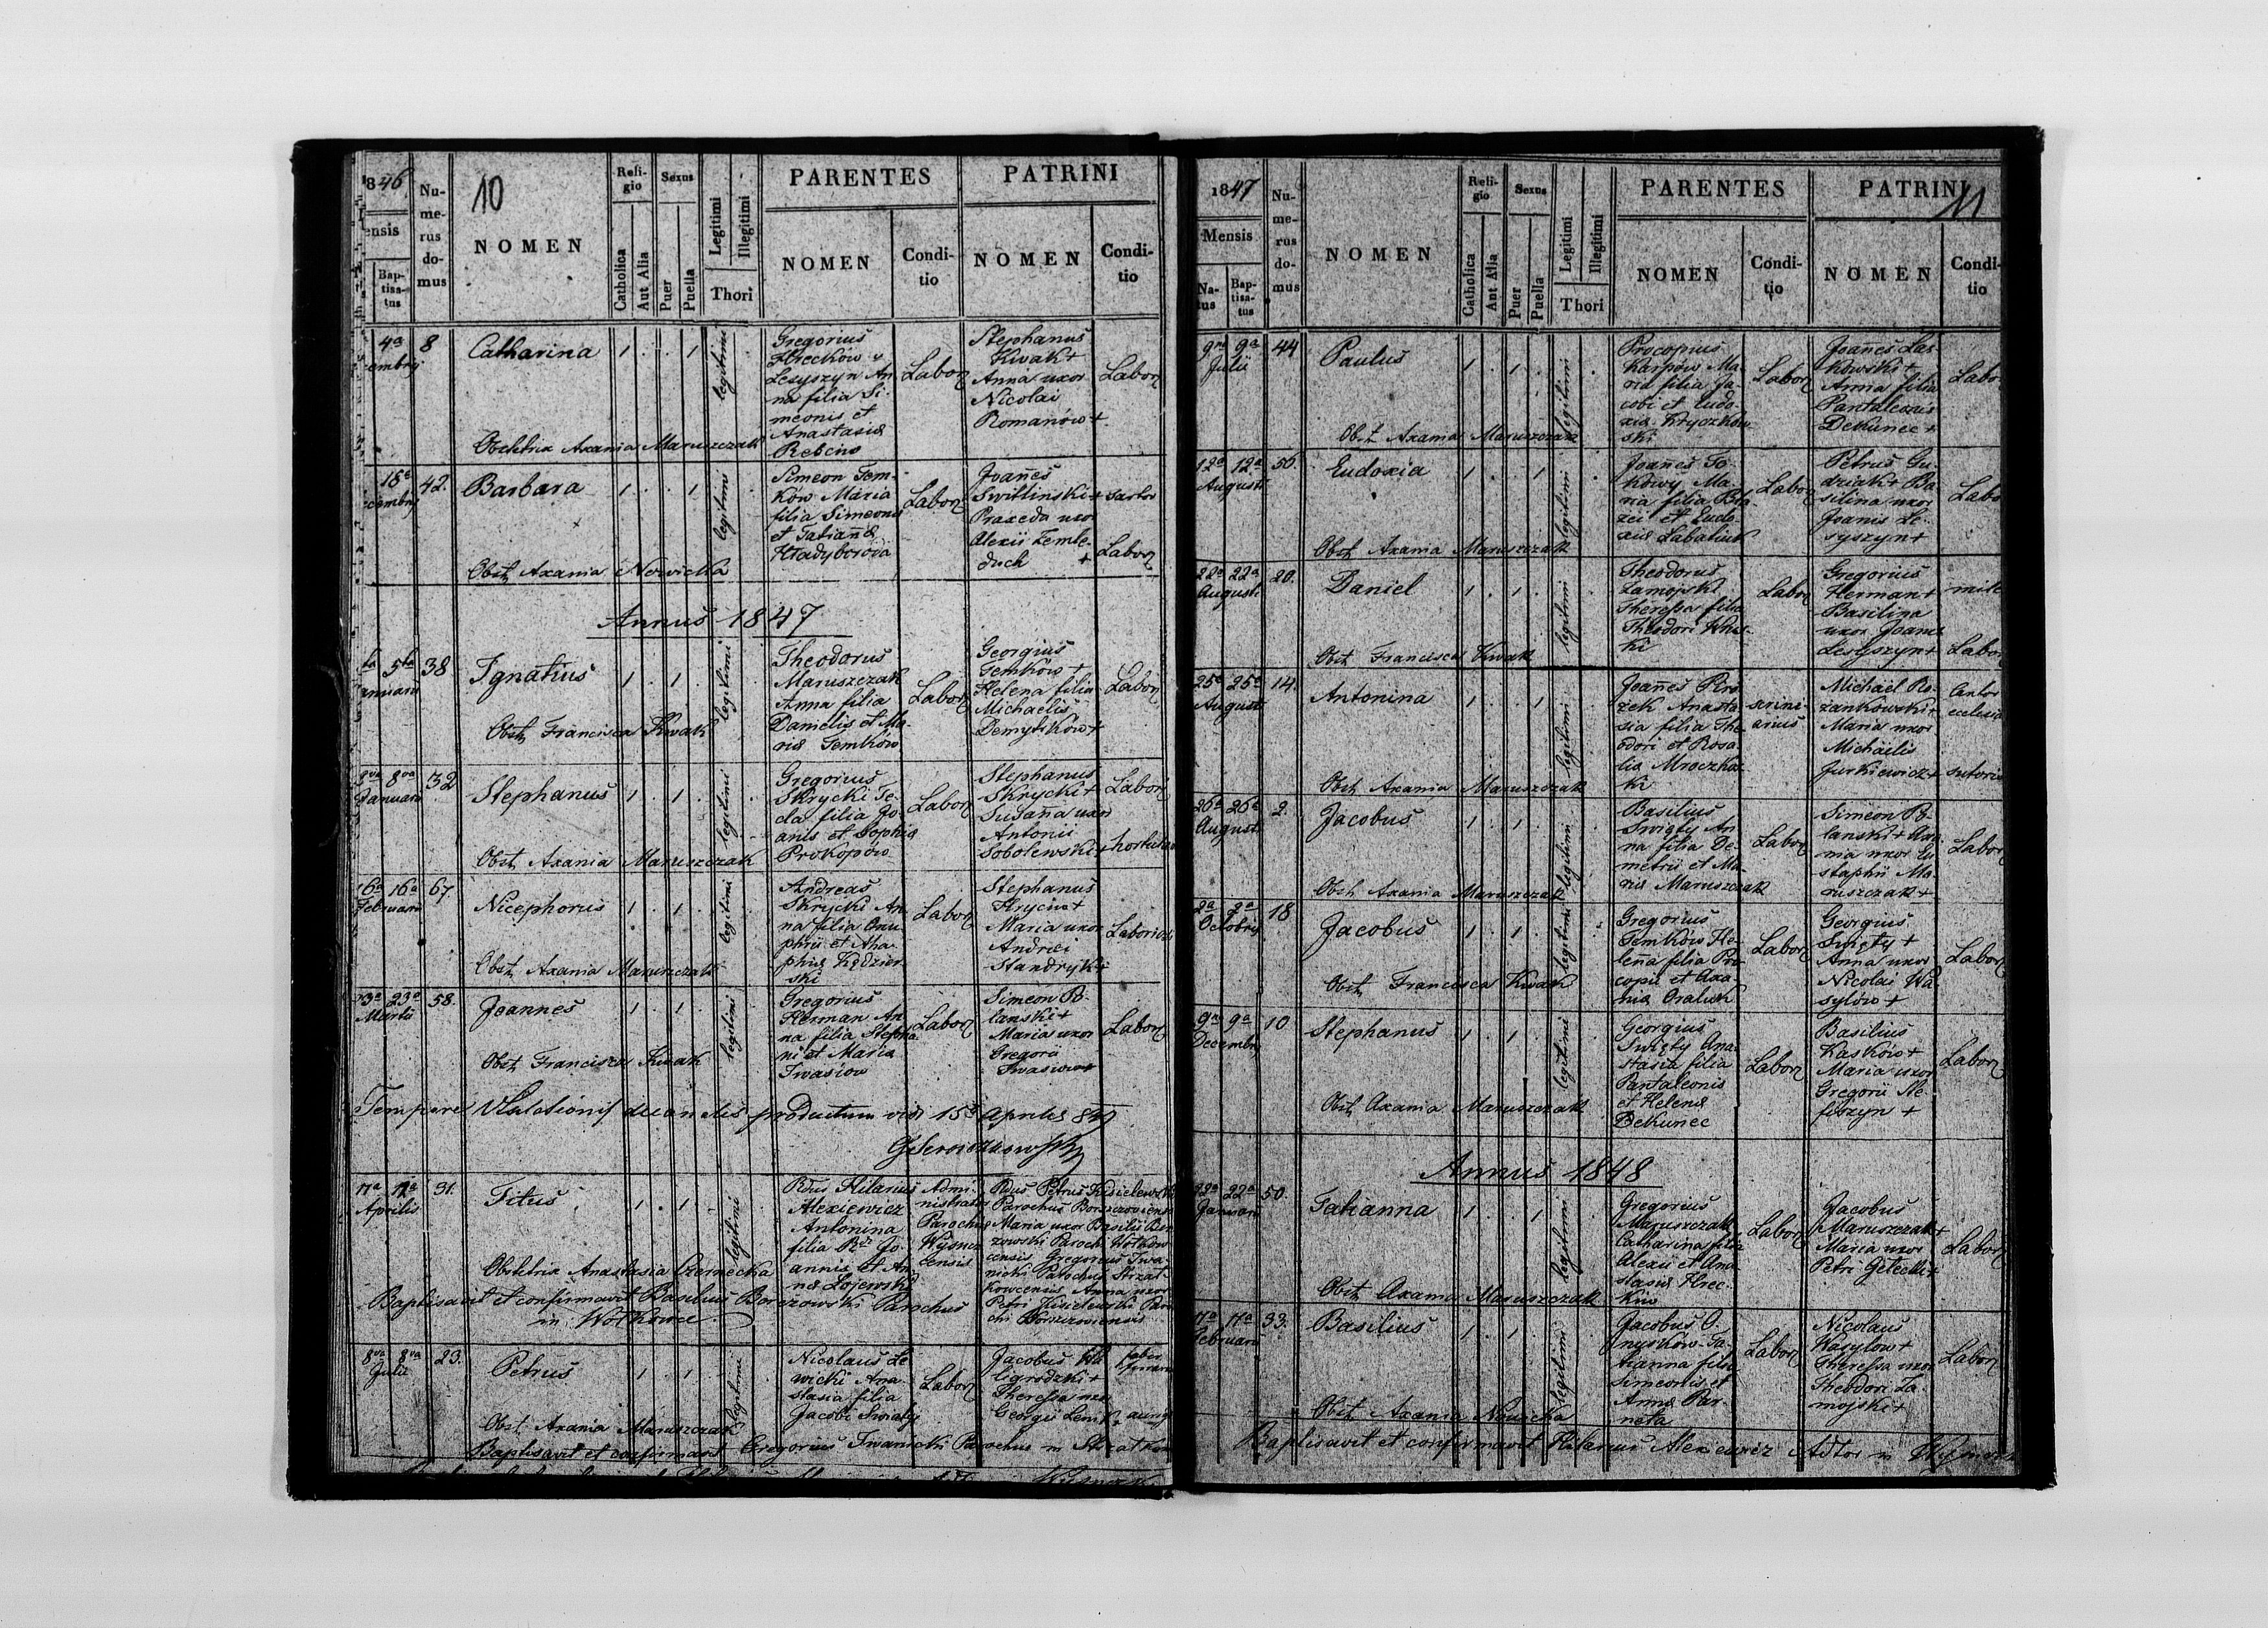 1846
10
ensis
Bap-
tisa-
tus
Nu-
me-
rus
do-
mus
NOMEN
Reli-
gio
Catholica
Aut Alia
Sexus
Puer
Puella
Legitimi
Illegitimi
Thori
PARENTES
NOMEN
Condi-
tio
PATRINI
NOMEN
Condi-
tio
4a 8
embris
Catharina 1 . . 1 legitimi
Gregorius
Hreckow v
Lesyszyn An
na filia Si-
meonis et
Anastasia
Labor
Stephanus
Kwak +
Anna uxor
Nicolai
Romanów +
Labor
Obstetrix Axania Maruszczak
18a 42.
cembris
Barbara 1 . . 1 legitimi
Simeon Tem-
ków Maria
filia Simeonis
et Tatianna
Hładyboroda
Labor
Joannes
Switlinski + Sartor
Praxeda uxor
Alexii Zemle-
duch + Labor
Obst Axania Nowicka
Annus 1847
5ta 38
anuarii
Ignatius 1 . 1 . legitimi
Theodorus
Maruszczak
Anna filia
Danielis et Ma-
ria Temków
Labor
Georgius
Temków +
Helena filia
Michaelis
Demytików +
Labor
Obst Francisca Kwak
8va 8va 32
Januarii
Stephanus 1 . 1 . legitimi
Gregorius
Skrycki Te-
cla filia Jo-
anis et Sophia
Prokopów
Labor
Stephanus
Skrycki +
Susanna uxor
Antonii
Sobolewski +
Labor
Obst Axania Maruszczak
16a 16a 67.
Februarii
Nicephorus 1 . 1 . legitimi
Andreas
Skrycki An-
na filia Onu-
phrii et Aha-
phia Kędzier-
ski
Labor
Stephanus
Hryciw +
Maria uxor
Andrei
Standryk +
Obst Axania Maruszczak
23a 23a 58.
Martii
Joannes 1 . 1 . legitimi
Gregorius
Herman An-
na filia Stepha-
ni et Maria
Iwasiow
Labor
Simeon Po-
lanski +
Maria uxor
Gregorii
Iwasiow +
Labor
Obst Francisca Kwak
Tempore Visitationis decanalis productum vidi 15 Aprilis 847
17a 17a 31.
Aprilis
Titus 1 . 1 . legitimi
Rdus Hilarius
Alexiewicz
Antonina
filia Rdi Jo-
annis et An-
na Łojewski
Admi-
nistrator
Parochus
Rdus Petrus Kisielewski
Parochus
Maria uxor Basilii Bor-
zowski Parochi Wołkow-
censis Gregorius Iwa-
nicki Parochus Strzał-
kowcensis Anna uxor
Petri Kisielewski Paro-
chi
Obstetrix Anastasia Czernecka
Baptisavit et confirmavit Basilius Borczowski Parochus
in Wołkowce
8va 8va 23.
Julii
Petrus 1 . 1 . legitimi
Nicolaus Le-
wicki Ana-
stasia filia
Jacobi
Labor
Jacobus Wa-
ligrodzki +
Theressa uxor
Georgii
faber
ferrarius
Obst Axania Maruszczak
Baptisavit et confirmavit Gregorius Iwanicki Parochus in
1847
11
Mensis
Na-
tus
Bap-
tisa-
tus
Nu-
me-
rus
do-
mus
NOMEN
Reli-
gio
Catholica
Aut Alia
Sexus
Puer
Puella
Legitimi
Illegitimi
Thori
PARENTES
NOMEN
Condi-
tio
PATRINI
NOMEN
Condi-
tio
9na 9a 44
Julii
Paulus 1 . 1 . legitimi
Procopius
Karpów Ma-
ria filia Ja-
cobi et Eudo-
xia
ski
Labor
Joannes Las-
kowski +
Anna filia
Pantaleonis
Dekunec +
Labo
Obst Axania Maruszczak
12a 12a 56.
Augusti
Eudoxia 1 . . 1 legitimi
Joannes To-
kowy Ma-
ria filia Bla-
zei et Eudo-
xia Labatiuk
Labor
Petrus Gu-
dziak + Ba-
silina uxor
Joanis Le-
syszyn +
Labo
Obst Axania Maruszczak
22a 22a 20.
Augusti
Daniel 1 . 1 . legitimi
Theodorus
Zamojski
Theressa filia
Theodori
ki
Labor
Gregorius
Herman +
Basilina
uxor Joanis
Lesyszyn +
mile
Labor
Obst Francisca Kwak
25a 25a 14.
Augusti
Antonina 1 . . 1 legitimi
Joannes Piro-
zek Anasta-
sia filia The-
odori et Rosa-
lia Mroczkow-
ki
scrini-
arius
Michael Ro-
zankowski +
Maria uxor
Michaelis
Jurkiewicz +
Cantor
ecclesia
Obst Axania Maruszczak
26a 26a 2.
Augusti
Jacobus 1 . 1 . legitimi
Basilius
Swięty An-
na filia De-
metrii et Ma-
ria Maruszczak
Labor
Simeon Po-
lanski + Axa-
nia uxor Eu-
staphii Ma-
ruszczak +
Labor
Obst Axania Maruszczak
2a 2a 18
Octobris
Jacobus 1 . 1 . legitimi
Gregorius
Temków He-
lena filia Pro-
copii et Axa-
nia
Labor
Georgius
Swięty +
Anna uxor
Nicolai Wa-
sylów +
Labor
Obst Francisca Kwak
9na 9a 10
Decembris
Stephanus 1 . 1 . legitimi
Georgius
Swięty Ana-
stasia filia
Pantaleonis
et Helena
Dekunec
Labor
Basilius
Kasków +
Maria uxor
Gregorii
+
Labor
Obst Axania Maruszczak
Annus 1848
22a 22a 50.
Januarii
Tatianna 1 . . 1 legitimi
Gregorius
Maruszczak
Catharina filia
Alexii et Ana-
stasia Hrec-
kiw
Labor
Jacobus
Maruszczak +
Maria uxor
Petri +
Labor
Obst Axania Maruszczak
17a 17a 33.
Februarii
Basilius 1 . 1 . legitimi
Jacobus O-
nysków Ta-
tianna filia
Simeonis et
Anna Par-
neta
Labor
Nicolaus
Wasylow +
Theressa uxor
Theodori Za-
mojski +
Labor
Obst Axania Nowicka
Baptisavit et confirmavit Hilarius Alexiewicz Adtor in